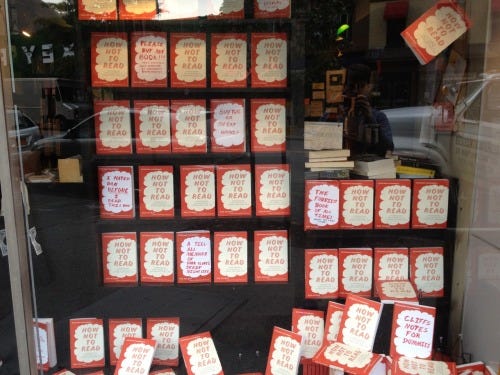 HOW NOT TO READ
HOW
NOT TO
READ
PLEASE
BUY THE
BOOK!!!
HOW
NOT TO
READ
HOW
NOT TO
READ
HOW
NOT TO
READ
HOW
NOT TO
READ
HOW
NOT TO
READ
HOW
NOT TO
READ
HOW
NOT TO
READ
I HATED
DAN
BEFORE
I
READ
THIS BOOK
HOW
NOT TO
READ
HOW
NOT TO
READ
HOW
NOT TO
READ
HOW
NOT TO
READ
THE
FUNNIEST
BOOK
OF ALL
TIME!
HOW
NOT TO
READ
HOW
NOT TO
READ
HOW
NOT TO
READ
HOW
NOT TO
READ
HOW
NOT TO
READ
A TELL
ALL
MEMOIR
OF
HOW
NOT TO
READ
HOW
NOT TO
READ
HOW
NOT TO
READ
HOW
NOT TO
READ
HOW
NOT TO
READ
HOW
NOT TO
READ
HOW
NOT TO
READ
HOW
NOT TO
READ
HOW
NOT TO
READ
HOW
NOT TO
READ
HOW
NOT TO
READ
HOW
NOT TO
READ
HOW
NOT TO
READ
CLIFFS
NOTES
FOR
DUMMIES